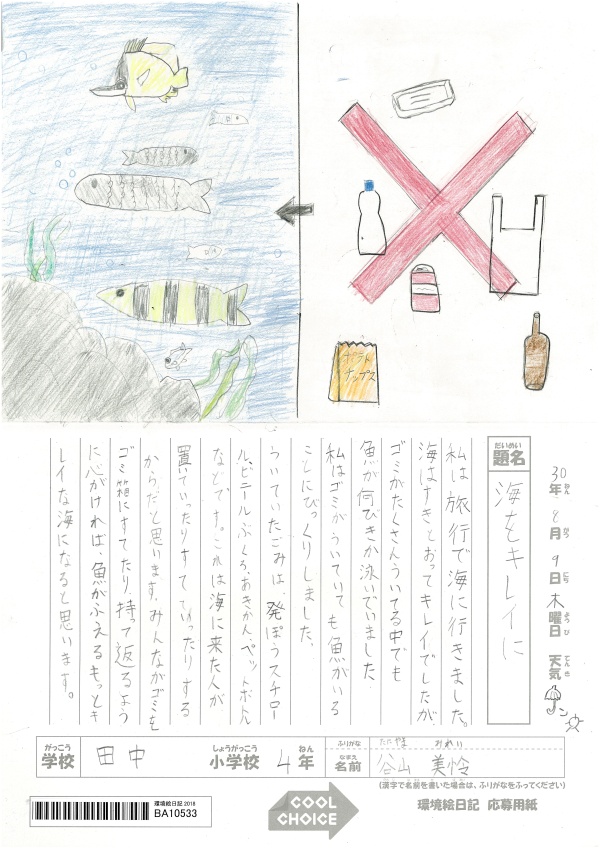 ポテト
チップス
30年8月9日木曜日 天気
ねん がつ にち ようび てんき
題名 海をキレイに
だいめい
私は旅行で海に行きました。
海はすきとおってキレイでしたが
ゴミがたくさんういてる中でも
魚が何びきか泳いでいました
私はゴミがういていても魚がいる
ことにびっくりしました、
ういていたごみは、発ぽうスチロー
ル、ビニールぶくろ、あきかん、ペットボトル
などです。これは海に来た人が
置いていったりすてていったりする
からだと思います。みんながゴミを
ゴミ箱にすてたり持って返るよう
に心がければ、魚がふえるもっとキ
レイな海になると思います。
がっこう しょうがっこう ねん ふりがな たにやま みれい
学校 田中 小学校 4年 なまえ 名前 谷山 美怜
(漢字で名前を書いた場合は、ふりがなをふってください)
環境絵日記2018
BA10533
COOL
CHOICE
環境絵日記 応募用紙